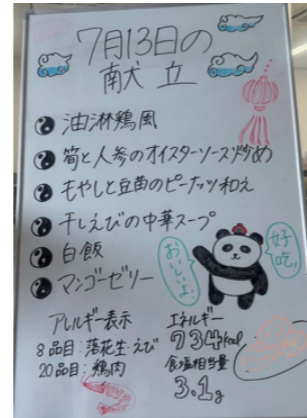 7月13日の
献立
油淋鶏風
筍と人参のオイスターソース炒め
もやしと豆苗のピーナッツ和え
干しえびの中華スープ
白飯
マンゴーゼリー
おいしいよ。
好吃!
アレルギー表示
8品目:落花生・えび
20品目:鶏肉
エネルギー
734kcal
食塩相当量
3.1g